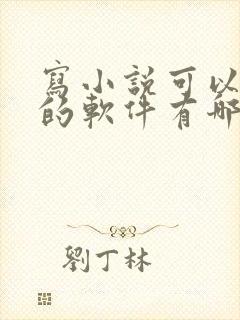 寫小説可以
的軟件有哪
劉丁林